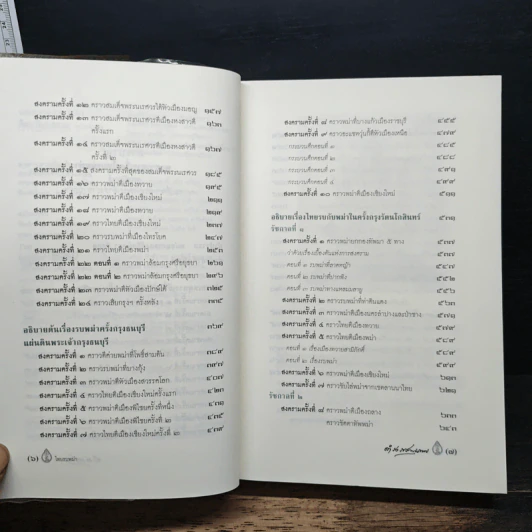 สงครามครั้งที่ ๑๒ คราวสมเด็จพระนเรศวรได้หัวเมืองมอญ ๑๕๗
สงครามครั้งที่ ๑๓ คราวสมเด็จพระนเรศวรตีเมืองหงสาวดี
ครั้งแรก ๑๖๓
สงครามครั้งที่ ๑๔ คราวสมเด็จพระนเรศวรตีเมืองหงสาวดี ๑๖๗
ครั้งที่ ๒
สงครามครั้งที่ ๑๕ สงครามครั้งที่สุดของสมเด็จพระนเรศวร ๑๘๕
สงครามครั้งที่ ๑๖ คราวพม่าตีเมืองทวาย ๑๙๕
สงครามครั้งที่ ๑๗ คราวพม่าตีเมืองเชียงใหม่ ๒๑๑
สงครามครั้งที่ ๑๘ คราวพม่าตีเมืองทวาย ๒๑๗
สงครามครั้งที่ ๑๙ คราวไทยตีเมืองเชียงใหม่
สงครามครั้งที่ ๒๐ คราวรบพม่าที่เมืองไทรโยค
สงครามครั้งที่ ๒๑ คราวไทยตีเมืองพม่า ๒๕๓
สงครามครั้งที่ ๒๒ ตอนที่ ๑ คราวพม่าล้อมกรุงศรีอยุธยา ๒๖๑
สงครามครั้งที่ ๒๒ ตอนที่ ๒ คราวพม่าล้อมกรุงศรีอยุธยา
สงครามครั้งที่ ๒๓ คราวพม่าตีหัวเมืองปักษ์ใต้
สงครามครั้งที่ ๒๔ คราวเสียกรุงฯ ครั้งหลัง ๓๑๕
อธิบายต้นเรื่องรบพม่าครั้งกรุงธนบุรี
แผ่นดินพระเจ้ากรุงธนบุรี
สงครามครั้งที่ ๑ คราวตีค่ายพม่าที่โพธิ์สามต้น
สงครามครั้งที่ ๒ คราวรบพม่าที่บางกุ้ง
สงครามครั้งที่ ๓ คราวพม่าตีหัวเมืองสวรรคโลก
สงครามครั้งที่ ๔ คราวไทยตีเมืองเชียงใหม่ครั้งแรก
สงครามครั้งที่ ๕ คราวพม่าตีเมืองพิชัยครั้งที่หนึ่ง
สงครามครั้งที่ ๖ คราวพม่าตีเมืองพิชัยครั้งที่ ๒ ๔๓๕
สงครามครั้งที่ ๗ คราวไทยตีเมืองเชียงใหม่ครั้งที่ ๒ ๔๓๙
(๖) ไทยรบพม่า
สงครามครั้งที่ ๘ คราวพม่าที่บางแก้วเมืองราชบุรี ๔๕๕
สงครามครั้งที่ ๙ คราวอะแซหวุ่นกี้ตีหัวเมืองเหนือ ๔๗๓
กระบวนศึกตอนที่ ๑ ๔๘๕
กระบวนศึกตอนที่ ๒ ๔๘๘
กระบวนศึกตอนที่ ๓ ๔๙๑
กระบวนศึกตอนที่ ๔ ๔๙๙
สงครามครั้งที่ ๑๐ คราวพม่าตีเมืองเชียงใหม่ ๕๑๑
อธิบายเรื่องไทยรบกับพม่าในครั้งกรุงรัตนโกสินทร์
รัชกาลที่ ๑
สงครามครั้งที่ ๑ คราวพม่ายกกองทัพมา ๕ ทาง
ว่าด้วยเรื่องเบื้องต้นแห่งการสงคราม
ตอนที่ ๑ รบพม่าที่ลาดหญ้า ๕๔๗
ตอนที่ ๒ รบพม่าที่ปากพิง
ตอนที่ ๓ รบพม่าทางแหลมมลายู ๕๕๖
สงครามครั้งที่ ๒ คราวรบพม่าที่ท่าดินแดง ๕๖๓
สงครามครั้งที่ ๓ คราวพม่าตีเมืองนครลำปางและป่าซาง
สงครามครั้งที่ ๔ คราวไทยตีเมืองทวาย ๕๗๙
สงครามครั้งที่ ๕ คราวไทยตีเมืองพม่า ๕๘๙
ตอนที่ ๑ เรื่องเมืองทวายสามิภักดิ์ ๕๘๙
ตอนที่ ๒ เรื่องรบพม่า
สงครามครั้งที่ ๖ คราวพม่าตีเมืองเชียงใหม่
สงครามครั้งที่ ๗ คราวขับไล่พม่าจากเขตลานนาไทย
รัชกาลที่ ๒
สงครามครั้งที่ ๘ คราวพม่าตีเมืองถลาง ๖๓๓
คราวขัดตาทัพพม่า ๖๔๓
(๗)